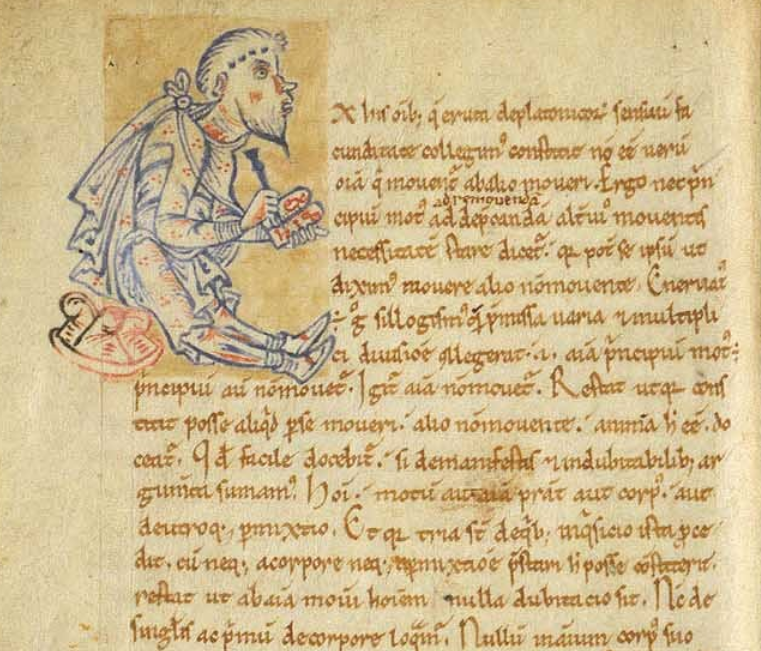 X his oīb; q̄ eruta deplatonicoꝝ sensuū fa
cunditate collegim᾽ constitit nō eē verū
oīa q̄ movent᾽ abalio moveri. Ergo nec p̄n
adremovendā
cipiū mot᾽ ad depcandā alt̄ius moventis
necessitatē stare dicet᾽. qr pot̄ se ipsū ut
dixim᾽ movere alio nōmovente. Enervat᾽
÷ g̊ sillogism᾽ quē p̄missa varia ⁊ multipli
ci divisiōe collegerat. i. aīa p̄ncipiū mot᾽ ÷
p̄ncipiū aū nōmovet᾽. Igit᾽ aīa nōmovet᾽. Restat utqr cons
titit posse aliqd̄ p̱se moveri. alio nōmovente. animā h̄ eē. do
ceat᾽. Qd̄ facile docebit᾽. si demanifestis ⁊ indubitabilib; ar
gumta sumam᾽. Hoī. motū aut aīa p̄stat aut corp᾽. aut
deutroq; p̱mixtio. Et qr tria st̄ deqb; inqsicio ista p̱ce
dit. cū neq; acorpore neq; p̱mixtiōe p̄stari h̄ posse cōstiterit.
restat ut abaīa movi hoīem nulla dubitacio sit. Nc̄ de
singłis ac p̄mū decorpore loqm̄᾽. Nullū inaīum corp᾽ suo